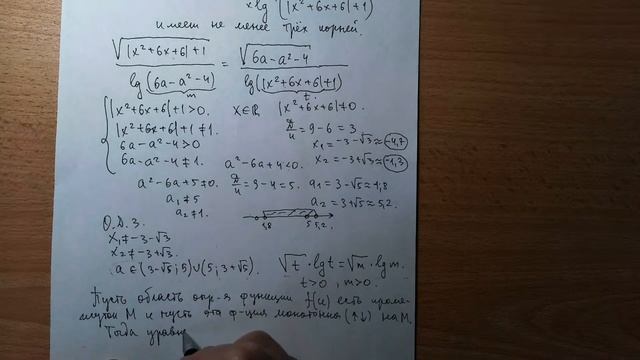 x lg (|x²+6x+6|+1)
имеет не менее трёх корней.
√(|x²+6x+6|+1) / lg(6a-a²-4) = √(6a-a²-4) / lg(|x²+6x+6|+1)
m t
|x²+6x+6|+1>0. x∈ℝ |x²+6x+6|≠0.
|x²+6x+6|+1≠1. D/4=9-6=3
6a-a²-4>0 x₁=-3-√3≈-4,7
6a-a²-4≠1. a²-6a+4<0. x₂=-3+√3≈-1,3
a²-6a+5≠0. D/4=9-4=5. a₁=3-√5≈1,8
a₁≠5 a₂=3+√5≈5,2.
a₂≠1. 1,8 5 5,2
О.Д.З.
x₁≠-3-√3
x₂≠-3+√3.
a∈(3-√5;5)∪(5;3+√5). √t·lgt=√m·lgm.
t>0, m>0.
Пусть область опр-я функции f(u) есть проме-
жуток M и пусть эта ф-ция монотонна (↑↓) на M.
Тогда уравн